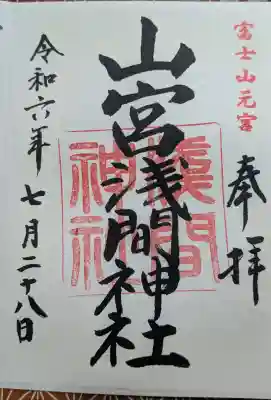 富士山元宮
奉拝
山宮浅間神社
淺間
神社
令和六年七月二十八日